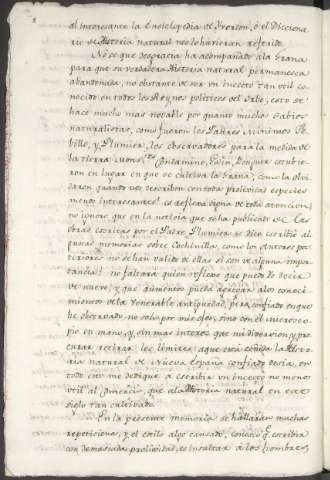 al interesante la Enciclopedia de Yverdon, ó el Dicciona-
rio de Historia natural nos lo hubieran referido.
No se que desgracia ha acompañado a la Grana
para que su verdadera Historia natural permanesca
abandonada, no obstante de ser un insecto tan util co-
nocido en todos los Reynos politicos del Orbe; esto se
hace mucho mas notable por quanto muchos Sabios
naturalistas, como fueron los Padres Minimos
y Plumier, los observadores para la medida de
la tierra estubie-
ron en lugar en que se cultiva la Grana, como la olvi-
daron quando nos describen con toda prolixidad especies
menos interesantes! es reflexa digna de toda atencion;
no ignoro que en la noticia que se ha publicado de las
obras escritas por el Padre Plumier se dice escribió al-
gunas memorias sobre Cochinilla, como los Autores pos-
teriores no se han valido de ellas si son de alguna impor-
tancia? no faltará quien reflexe que puedo Yo decir
de nuevo, y que aumento pueda acercar a los conoci-
mientos de la venerable antiguedad, pero confiado en que
he observado no solo por mis ojos, sino con el microsco-
pio en mano, y sin mas interes que mi diversion, y pro-
curar retirar los limites, á que está ceñida la Histo-
ria natural de Nueva España confiado decia, en
todo esto me dediqué a escribir un insecto no menos
util al Comercio, que a la Historia natural en este
siglo tan cultivada.
En la presente memoria se hallarán muchas
repeticiones, y el estilo algo cansado, conosco q. escribir
con demasiada prolixidad, es insultar á los hombres